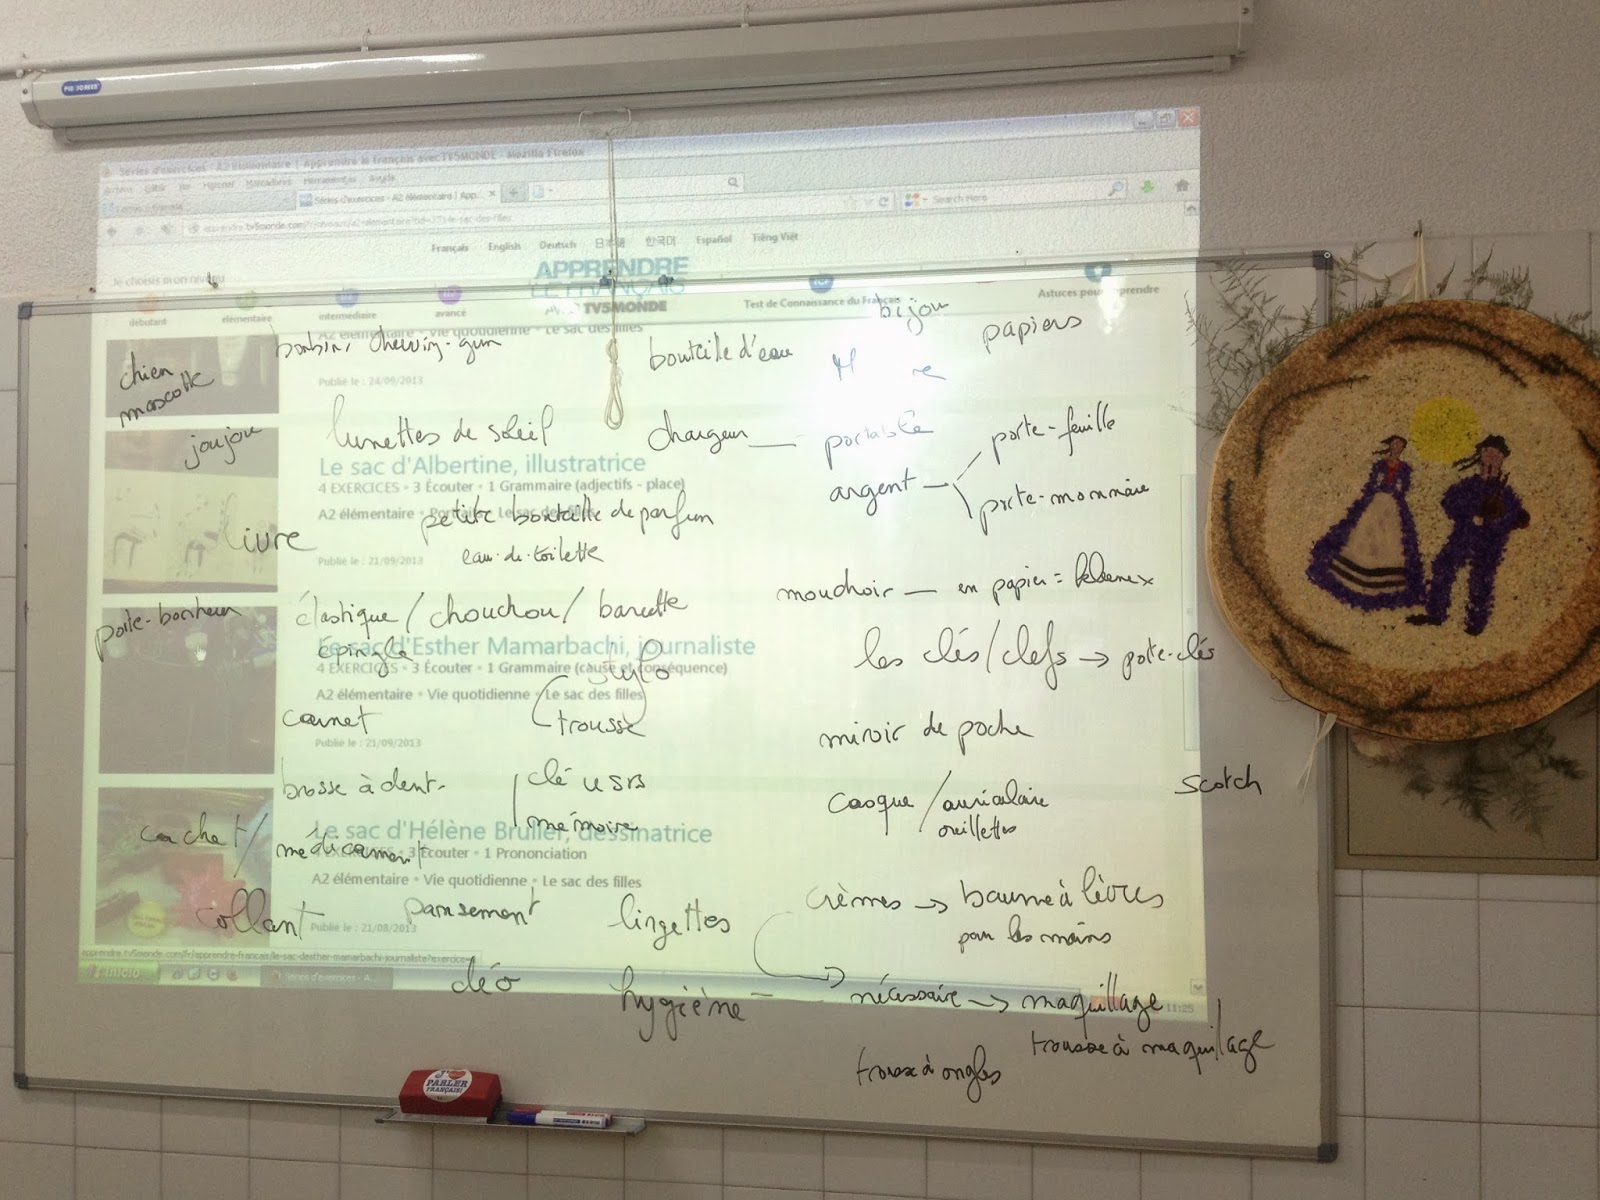 Séries d'exercices - A2 élémentaire | Apprendre le français avec TV5MONDE - Mozilla Firefox
Séries d'exercices - A2 élémentaire | App...
Search Here
Français English Deutsch 日本語 한국어 Español Tiếng Việt
Je choisis mon niveau
APPRENDRE
LE FRANÇAIS
TV5MONDE
débutant
élémentaire
intermédiaire
avancé
TCF
Test de Connaissance du Français
Astuces pour apprendre
bijou
papiers
A2 élémentaire • Vie quotidienne • Le sac des filles
chewing-gum
bouteille d'eau
chien
mascotte
Publié le : 24/09/2013
joujou
lunettes de soleil
chargeur — portable
porte-feuille
argent
porte-monnaie
Le sac d'Albertine, illustratrice
4 EXERCICES • 3 Écouter • 1 Grammaire (adjectifs - place)
A2 élémentaire • Le sac des filles
petite bouteille de parfum
livre
eau-de-toilette
Publié le : 21/09/2013
mouchoir — en papier =
élastique / chouchou / barrette
porte-bonheur
épingle
Le sac d'Esther Mamarbachi, journaliste
4 EXERCICES • 3 Écouter • 1 Grammaire (cause et conséquence)
les clés/clefs → porte-clés
stylo
A2 élémentaire • Vie quotidienne • Le sac des filles
carnet
trousse
miroir de poche
Publié le : 21/09/2013
brosse à dent.
clé USB
mémoire
casque / auriculaire
oreillettes
scotch
cachet /
médicament
Le sac d'Hélène Bruller, dessinatrice
4 EXERCICES • 3 Écouter • 1 Prononciation
A2 élémentaire • Vie quotidienne • Le sac des filles
crèmes → baume à lèvres
pour les mains
collant
pansement
lingettes
Publié le : 21/08/2013
apprendre.tv5monde.com/fr/apprendre-francais/le-sac-desther-mamarbachi-journaliste?exercice=4
Início
11:25
déo
hygiène — nécessaire → maquillage
trousse à maquillage
trousse à ongles
J'
PARLER
FRANÇAIS!